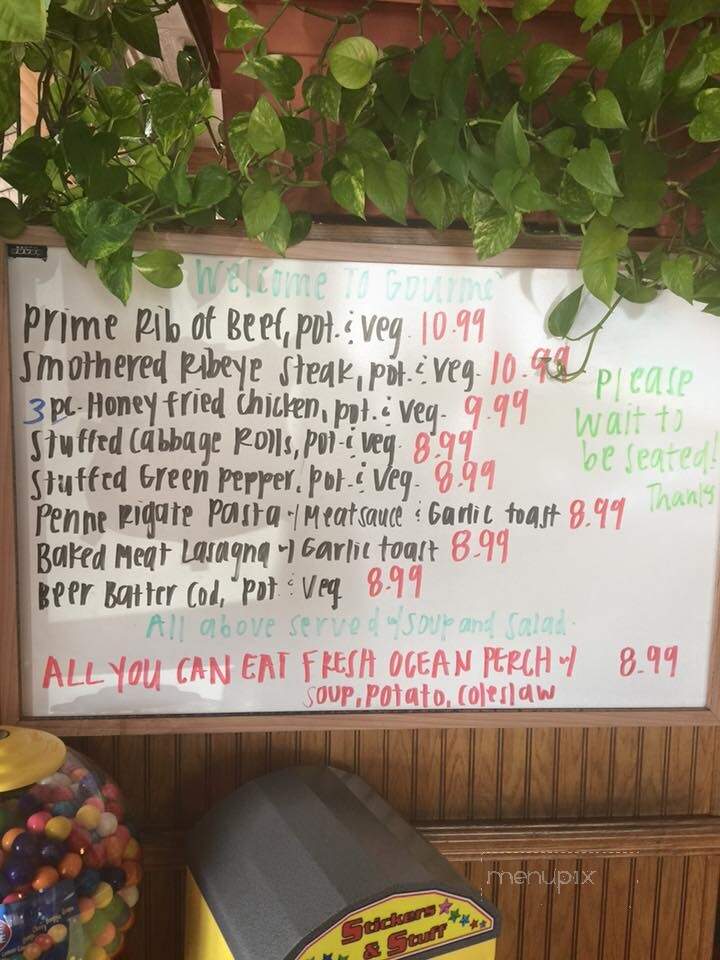 Welcome To Gourme
Prime Rib of Beef, pot. & veg. 10.99
Smothered Ribeye Steak, pot. & veg. 10.99
3 pc. Honey fried chicken, pot. & veg. 9.99
Stuffed Cabbage Rolls, pot. & veg. 8.99
Stuffed Green Pepper, pot. & veg. 8.99
Penne Rigate Pasta w/ Meatsauce & Garlic toast 8.99
Baked Meat Lasagna w/ Garlic toast 8.99
Beer Batter Cod, Pot & Veg 8.99
All above served w/ soup and salad.
ALL YOU CAN EAT FRESH OCEAN PERCH w/ 8.99
soup, potato, coleslaw
Please
Wait to
be seated!
Thanks
menupix
Stickers
& Stuff